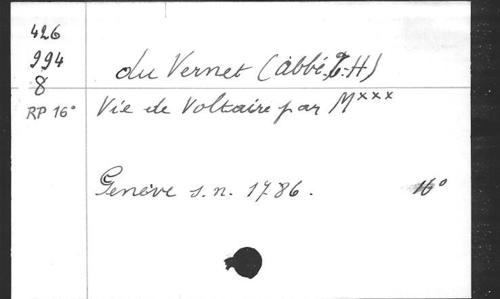 426
994
8
du Vernet (abbé T-H)
RP 16°
Vie de Voltaire par M***
Genève s.n. 1786.
16°